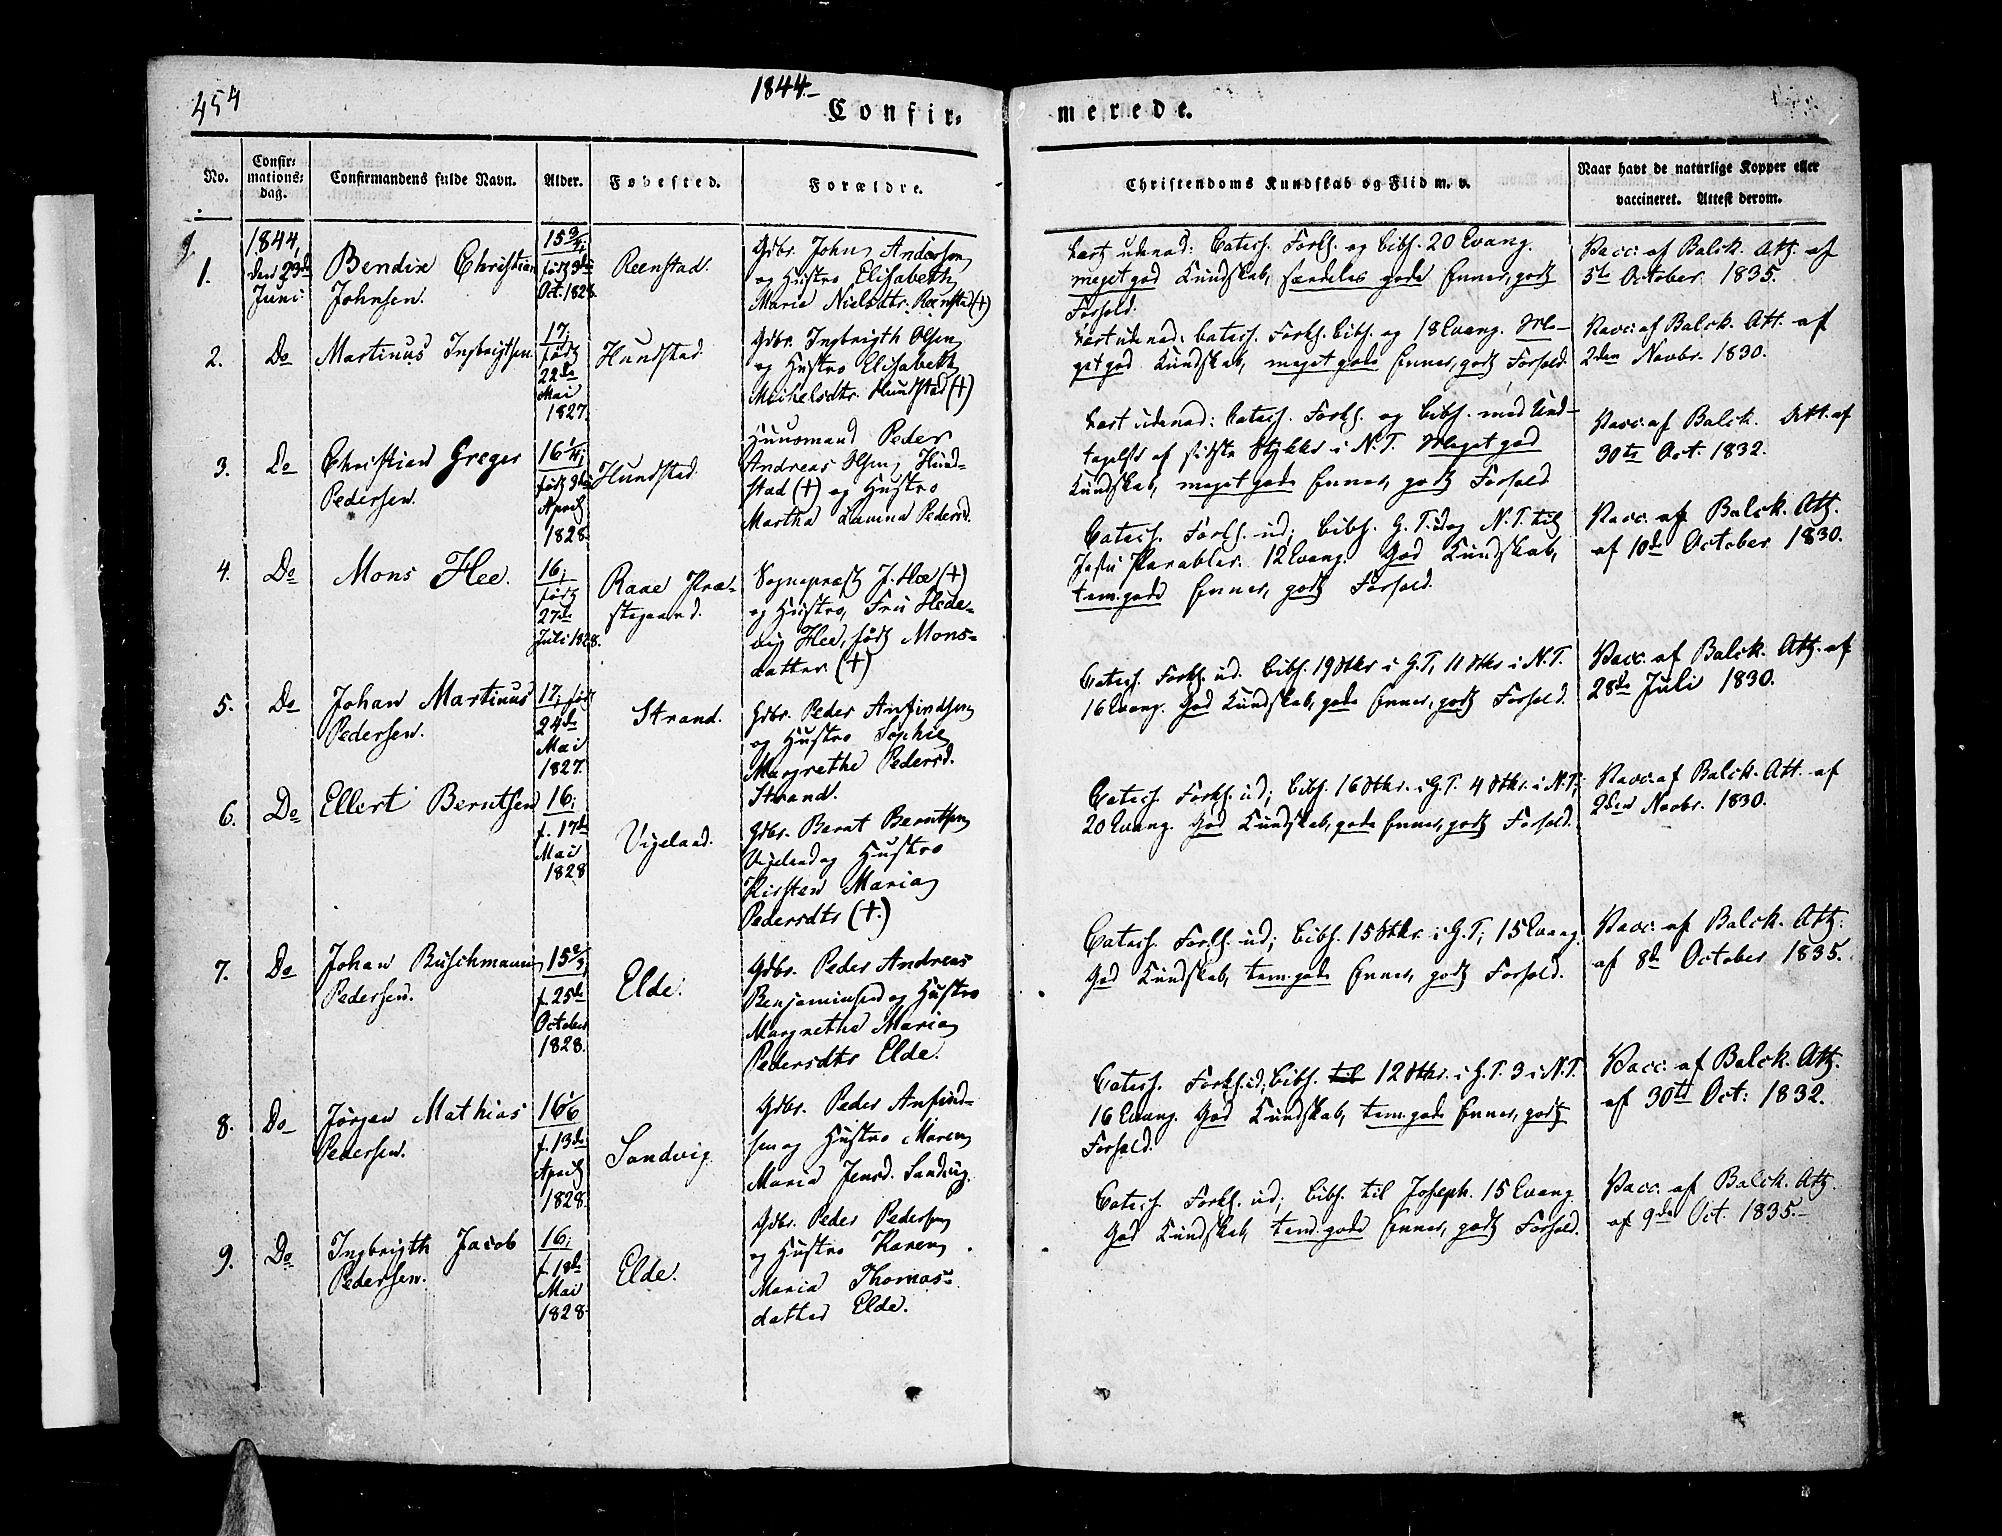 454
1844.-
Confir=
merede.
No.
Confir=
mations=
dag.
Confirmandens fulde Navn.
Alder.
Fødested.
Forældre.
Christendoms Kundskab og Flid m. v.
Naar havt de naturlige Kopper eller
vaccineret. Attest derom.
1.
1844,
den 23de
Juni
Bendix Christian
Johnsen.
15 3/4;
født 3die
Oct. 1828.
Reenstad.
Gdbr. John Andersen
og Hustro Elisabeth
Maria Nielsdtr. Reenstad (+)
Lært udenad: Catech. Forkl. og Bibh. 20 Evang.
meget god Kundskab, særdeles gode Evner, godt
Forhold.
Vacc. af Balck. Att. af
5te October 1835.
2.
Do
Martinus Ingbrigtsen
17;
født
22de
Mai
1827.
Hundstad
Gdbr. Ingbrigth Olsen
og Hustro Elisabeth
Michelsdtr. Hundstad (+)
Lært udenad: Catech. Forkl. Bibh. og 18 Evang. Me=
get god Kundskab, meget gode Evner, godt Forhold
Vacc. af Balck. Att. af
2den Novbr. 1830.
3.
Do
Christian Greger
Pedersen.
16 1/4;
født 3die
April
1828
Hundstad
Huusmand Peder
Andreas Olsen Hund=
stad (+) og Hustro
Martha Lavina Pedersd.
Lært udenad: Catech. Forkl. og Bibh. med Und=
tagelse af sidste Stykke i N.T. Meget god
Kundskab, meget gode Evner, godt Forhold
Vacc. af Balck. Att. af
30te Oct. 1832.
4.
Do
Mons Hee.
16;
født
27de
Juli 1828.
Raae Præ=
stegaard.
Sognepræst J. Hee (+)
og Hustro, Fru Hede=
vig Hee, født Mons=
datter (+)
Catech. Forkl. ud; Bibh. G.T. ud og N.T. til
Jesu Parabler. 12 Evang. God Kundskab,
tem. gode Evner, godt Forhold.
Vacc. af Balck. Att.
af 10de October 1830.
5.
Do
Johan Martinus
Pedersen.
17; født
24de
Mai
1827.
Strand.
Gdbr. Peder Anfindsen
og Hustro Sophie
Margrethe Pedersd.
Strand.
Catech. Forkl. ud. Bibh. 19 Stkr i G.T, 11 Stkr i N.T.
16 Evang. God Kundskab, gode Evner, godt Forhold.
Vacc. af Balck. Att. af
28de Juli 1830.
6.
Do
Ellert Berntsen
16;
f. 17de
Mai
1828
Vigeland.
Gdbr. Bernt Berntsen
Vigeland og Hustro
Kirsten Maria
Pedersdtr (+.)
Catech. Forkl. ud; Bibh. 16 Stkr. i G.T. 4 Stkr. i N.T;
20 Evang. God Kundskab, gode Evner, godt Forhold.
Vacc. af Balck. Att. af
2den Novbr. 1830.
7.
Do
Johan Buschmann
Pedersen.
15 2/3;
f. 25de
October
1828.
Elde.
Gdbr. Peder Andreas
Benjaminsen og Hustro
Margretha Maria
Pedersdtr Elde.
Catech. Forkl. ud; Bibh. 15 Stkr. i G.T; 15 Evang.
God Kundskab, tem. gode Evner, godt Forhold.
Vacc. af Balck. Att.
af 8de October 1835.
8.
Do
Jørgen Mathias
Pedersen.
16 1/6
f. 13de
April
1828
Sandvig
Gdbr. Peder Anfind=
sen og Hustro Maren
Maria Jensd. Sandvig.
Catech. Forkl. ud; Bibh. til 12 Stkr. i G.T. 3 i N.T.
16 Evang. God Kundskab, tem. gode Evner, godt
Forhold.
Vacc. af Balck. Att.
af 30te Oct: 1832.
9.
Do
Ingbrigth Jacob
Pedersen.
16;
f. 18de
Mai
1828.
Elde.
Gdbr. Peder Pedersen
og Hustro Karen
Maria Thomas=
datter Elde.
Catech. Forkl. ud; Bibh. til Joseph. 15 Evang.
God Kundskab, tem. gode Evner, godt Forhold.
Vacc. af Balck. Att.
af 9de Oct. 1835.-